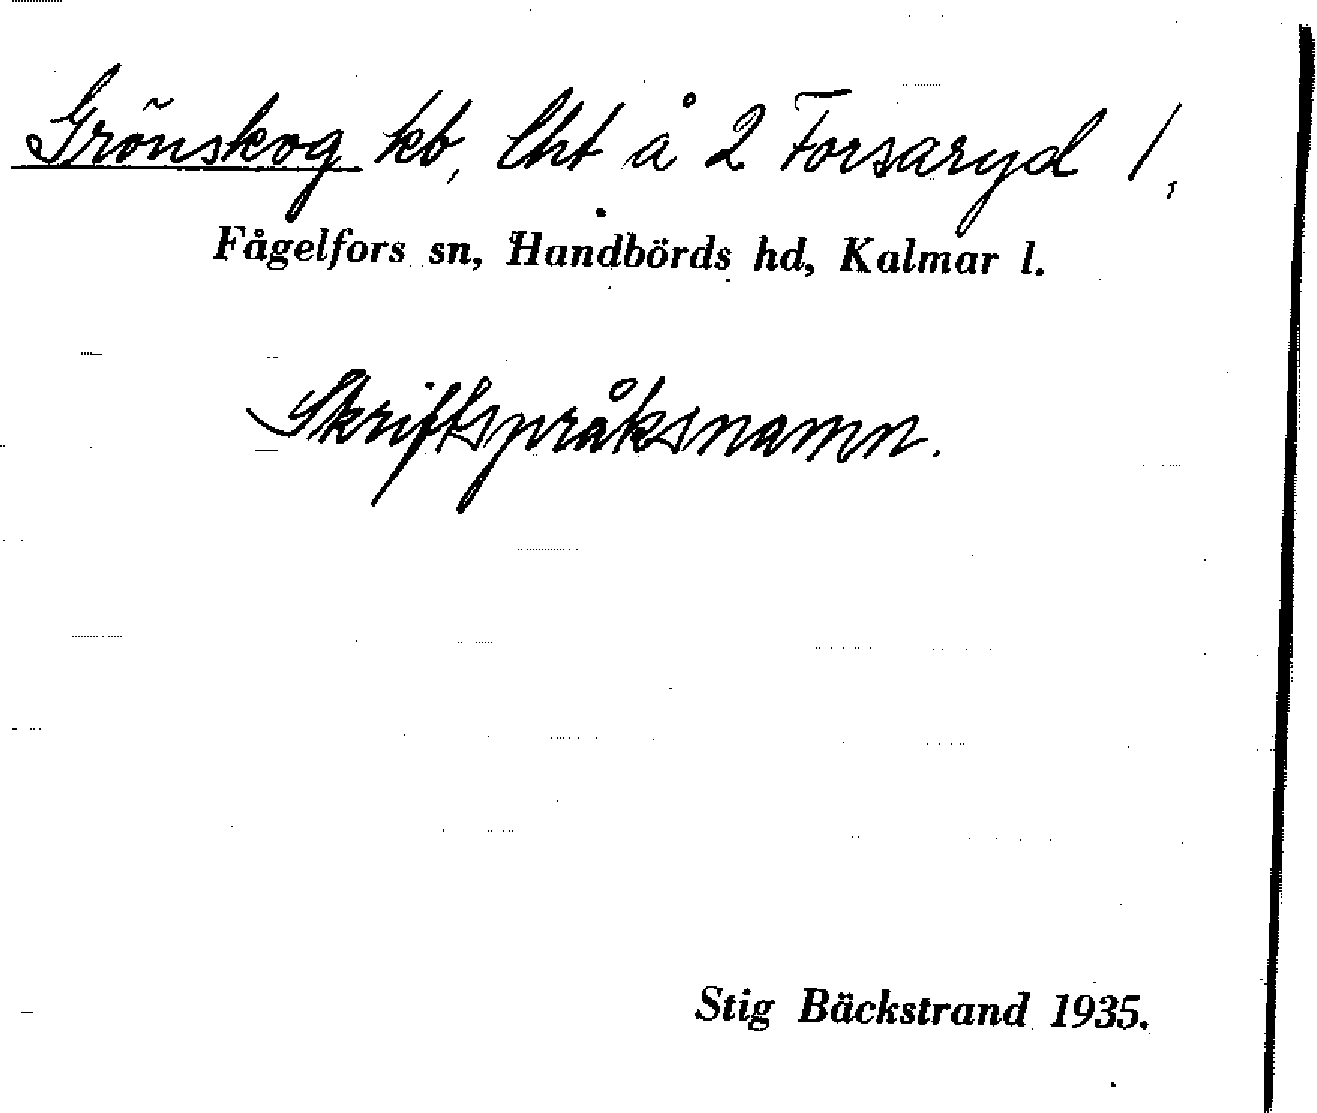 Grönskog kb, lht å 2 Forsaryd 1,
Fågelfors sn, Handbörds hd, Kalmar l.
Skriftspråksnamn.
Stig Bäckstrand 1935.